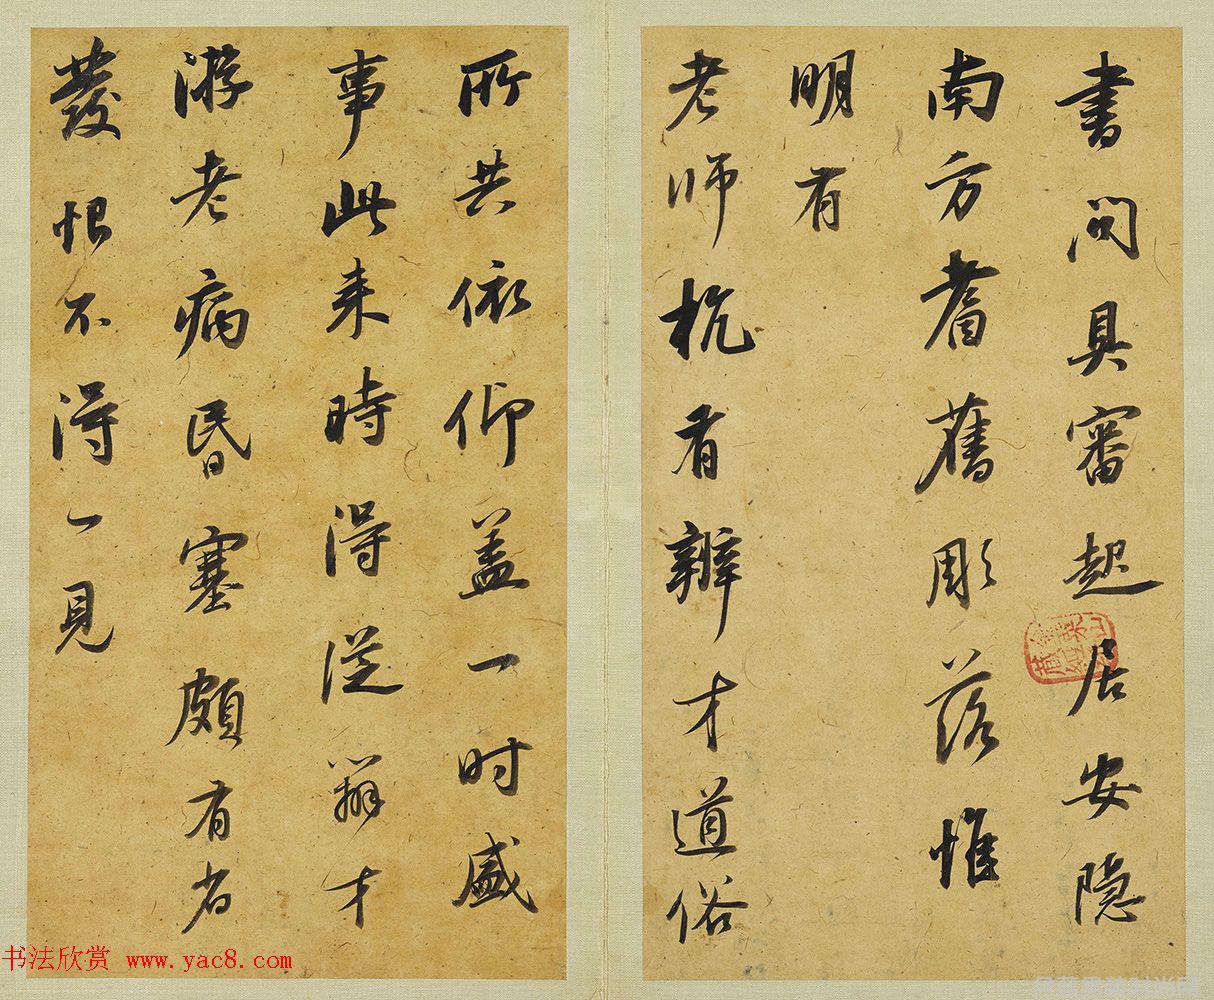 書問具審起居安隱
南方耆舊彫落惟
明有
老師杭有辯才道俗
所共依仰盖一時盛
事此来時得從辯才
游老病昏塞頗有省
發恨不得一見
书法欣赏 www.yac8.com